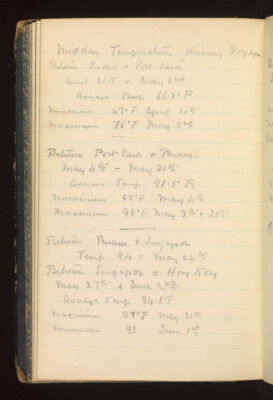 Midday Temperature during Voyage
Between London & Port Said
April 21st – May 2nd
Average Temp. 66.2° F
Minimum 47° F April 21st
Maximum 76° F May 2nd
Between Port Said & Penang.
May 4th – May 21st
Average Temp. 91.5° F.
Minimum 82° F May 4th
Maximum 96° F May 7th & 21st
Between Penang & Singapore
Temp. 94 – May 24th
Between Singapore & Hong Kong
May 27th & June 2nd
Average Temp 94.1° F
Maximum 97° F May 31st
Minimum 91 June 1st